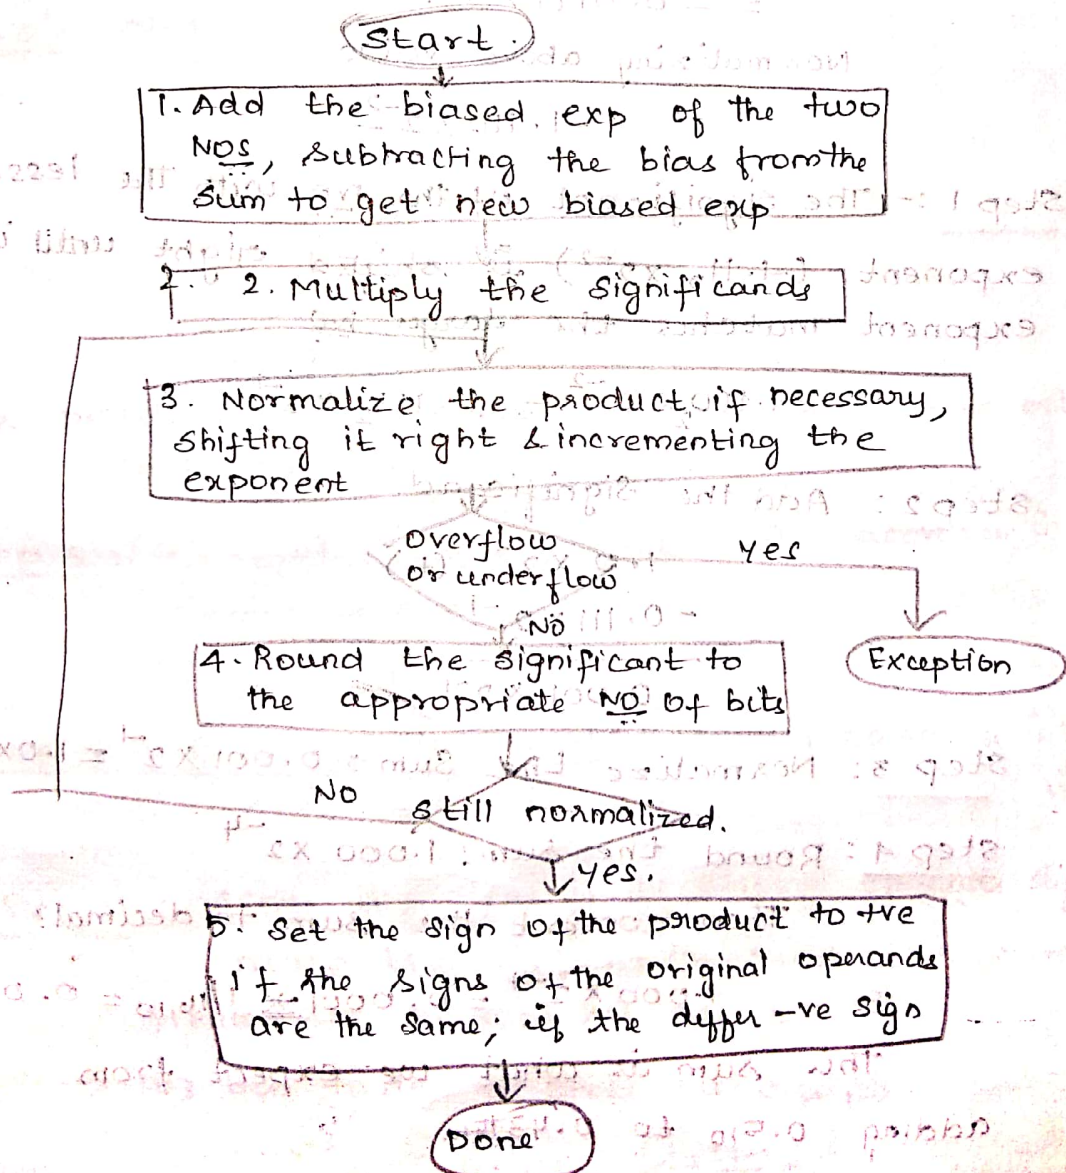 Start.
1. Add the biased exp of the two
NOS, subtracting the bias from the
sum to get new biased exp
2. 2. Multiply the significands
3. Normalize the product, if necessary,
shifting it right & incrementing the
exponent
overflow
or underflow
yes
NO
4. Round the significant to
the appropriate NO of bits
Exception
NO
still normalized.
yes.
5. Set the sign of the product to +ve
if the signs of the original operands
are the same; if the differ -ve sign
Done